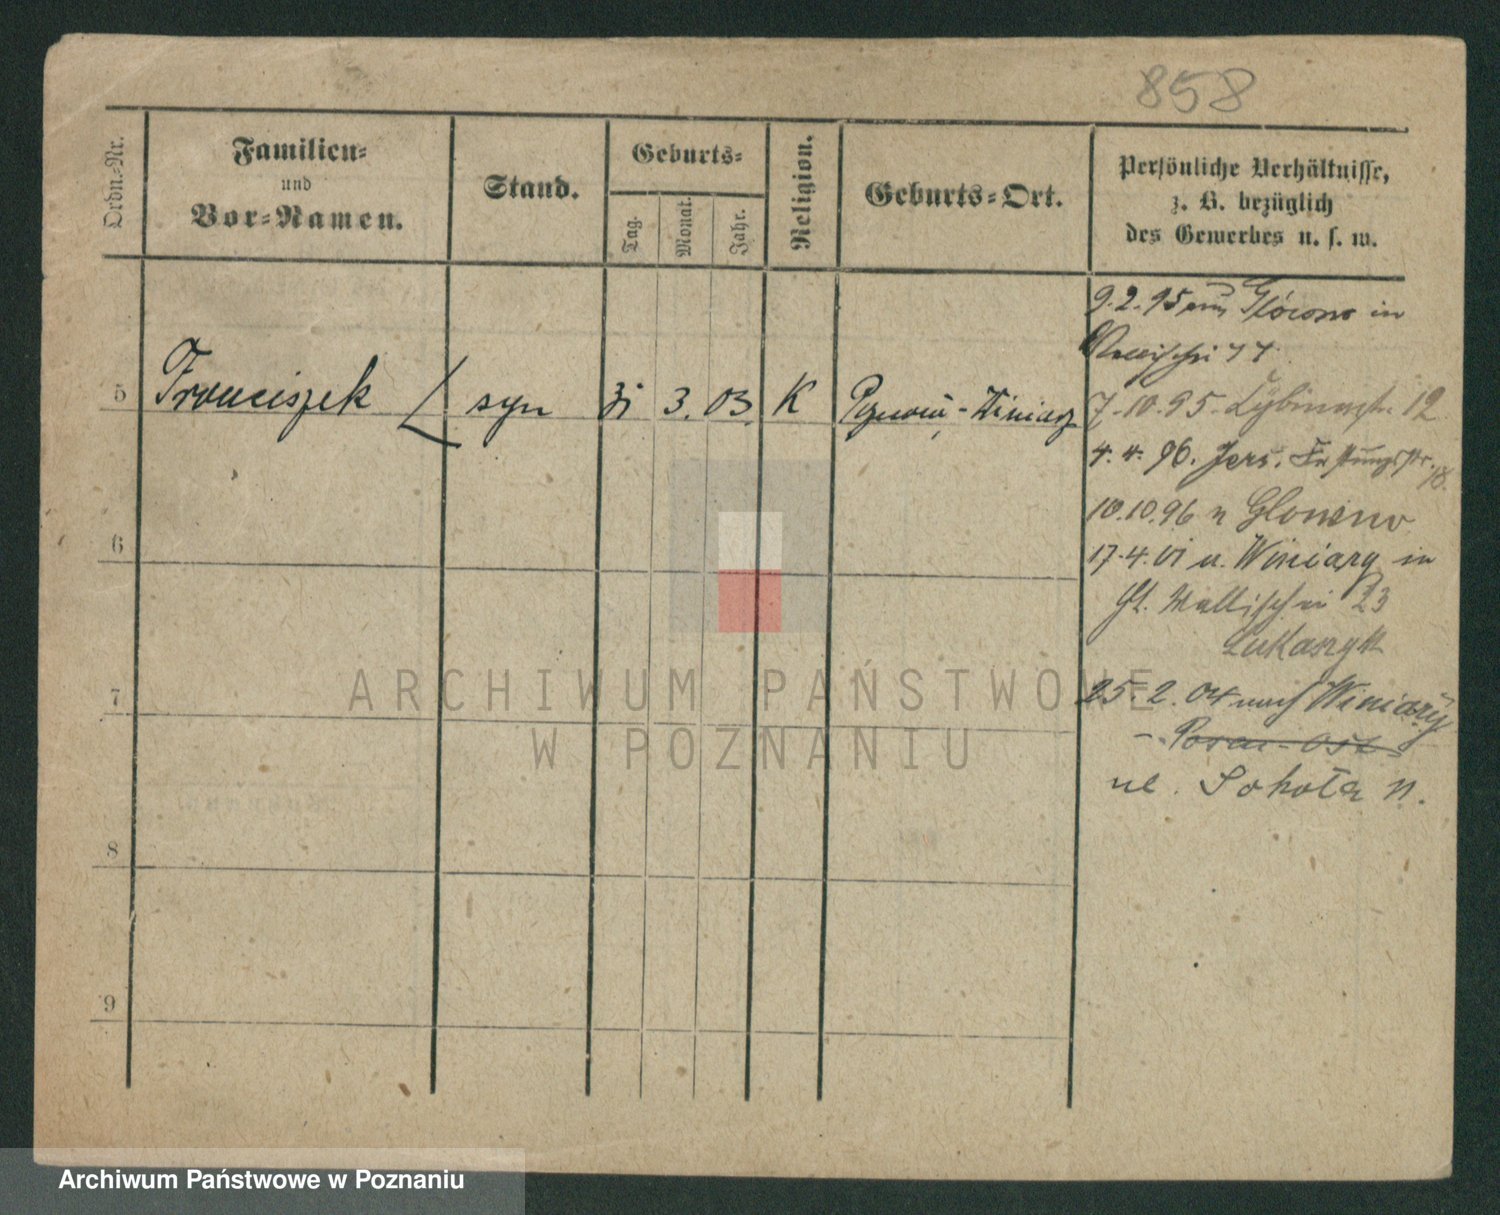 858
Ordn.-Nr.
Familien-
und
Vor-Namen.
Stand.
Geburts-
Tag.
Monat.
Jahr.
Religion.
Geburts-Ort.
Persönliche Verhältnisse,
z. B. bezüglich
des Gewerbes u. s. w.
5 Franciszek syn 31 3. 03 K Poznań-Winiary
9.2.95 in
7.10.95. 12
4.4.96. Jers. Festungsstr. 18.
10.10.96 n Glowno
17.4.01 u. Winiary in
St. Wallischei 23
Lukaszyk
25.2.04 nach Winiary
- Posen-Ost
ul. Sokoła 11.
6
7
8
9
ARCHIWUM PAŃSTWOWE
W POZNANIU
Archiwum Państwowe w Poznaniu